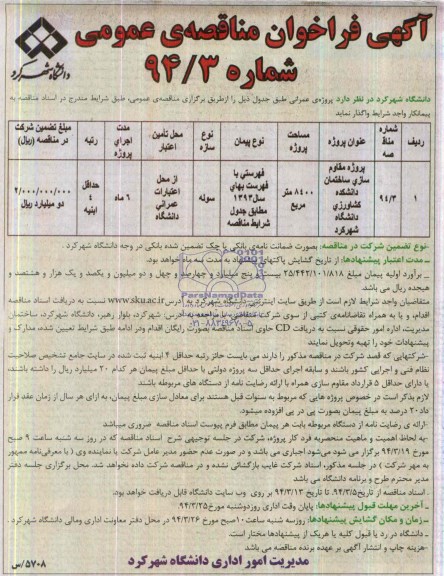 آگهی فراخوان مناقصه‌ی عمومی
شماره ۹۴/۳
دانشگاه شهرکرد
دانشگاه شهرکرد در نظر دارد پروژه‌ی عمرانی طبق جدول ذیل را ازطریق برگزاری مناقصه‌ی عمومی، طبق شرایط مندرج در اسناد مناقصه به
پیمانکار واجد شرایط واگذار نماید
ردیف شماره مناقصه عنوان پروژه مساحت پروژه نوع پیمان نوع سازه محل تأمین اعتبار مدت اجرای پروژه رتبه مبلغ تضمین شرکت در مناقصه (ریال)
۱ ۹۴/۳ پروژه مقاوم سازی ساختمان دانشکده کشاورزی دانشگاه شهرکرد ۸۴۰۰ متر مربع فهرستی با فهرست بهای سال۱۳۹۳ مطابق جدول شرایط مناقصه سوله از محل اعتبارات عمرانی دانشگاه ۶ ماه حداقل ۴ ابنیه ۲/۰۰۰/۰۰۰/۰۰۰ دو میلیارد ریال
-نوع تضمین شرکت در مناقصه: بصورت ضمانت نامه‌ی بانکی یا چک تضمین شده بانکی در وجه دانشگاه شهرکرد .
ــ مدت اعتبار پیشنهادها: از تاریخ گشایش پاکتهای پیشنهاد به مدت سه ماه خواهد بود.
ــ برآورد اولیه پیمان مبلغ ۲۵/۴۴۲/۱۰۱/۸۱۸ بیست و پنج میلیارد و چهارصد و چهل و دو میلیون و یکصد و یک هزار و هشتصد و
هیجده ریال می باشد.
متقاضیان واجد شرایط لازم است از طریق سایت اینترنتی دانشگاه شهرکرد به آدرس www.sku.ac.ir نسبت به دریافت اسناد مناقصه
اقدام، و یا به همراه تقاضانامه‌ی کتبی از سوی شرکت متقاضی، با مراجعه به آدرس: شهرکرد، بلوار رهبر، دانشگاه شهرکرد، ساختمان
مدیریت، اداره امور حقوقی نسبت به دریافت CD حاوی اسناد مناقصه بصورت رایگان اقدام ودر ادامه طبق شرایط تعیین شده، مدارک و
پیشنهادات خود را تهیه وتحویل نمایند
-شرکتهایی که قصد شرکت در مناقصه مذکور را دارند می بایست حائز رتبه حداقل ۴ ابنیه ثبت شده در سایت جامع تشخیص صلاحیت
نظام فنی و اجرایی کشور باشند و سابقه اجرای حداقل سه پروژه دولتی با حداقل مبلغ پیمان هر کدام ۲۰ میلیارد ریال را داشته باشند،
یا دارای حداقل ۵ قرارداد مقاوم سازی همراه با ارائه رضایت نامه از دستگاه های مربوطه باشند
لازم بذکر است در خصوص پروژه هایی که مربوط به سنوات قبل هستند برای معادل سازی مبلغ پیمان، به ازای هر سال از زمان عقد قرار
داد ۲۰ درصد به مبلغ پیمان بصورت پی در پی افزوده میشود.
-ارائه ی رضایت نامه از دستگاه مربوطه بابت هر پیمان مطابق فرم پیوست اسناد مناقصه ضروری میباشد
-به لحاظ اهمیت و ماهیت منحصربه فرد کار پروژه، شرکت در جلسه توجیهی شرح اسناد مناقصه که در روز سه شنبه ساعت ۹ صبح
مورخ ۹۴/۳/۱۹ برگزار می شود می‌شود اجباری می باشد و در صورت عدم حضور مدیر عامل شرکت یا نماینده وی (با معرفی‌نامه ممهور
به مهر شرکت ) در جلسه مذکور، اسناد شرکت غایب بازگشائی نشده و در مناقصه شرکت داده نخواهد شد. محل برگزاری جلسه دفتر
مدیر محترم طرح و برنامه دانشگاه می باشد
ـ اسناد مناقصه از تاریخ ۹۴/۳/۵ تا تاریخ ۹۴/۳/۱۳ بر روی وب سایت دانشگاه قابل دریافت خواهد بود.
ـ آخرین مهلت قبول پیشنهادها: پایان وقت اداری روزدوشنبه مورخ۹۴/۳/۲۵
ـ زمان و مکان گشایش پیشنهادها: روزسه شنبه ساعت ۱۰صبح مورخ ۹۴/۳/۲۶ در محل دفتر معاونت اداری ومالی دانشگاه شهرکرد .
ـ دانشگاه در رد یا قبول کلیه یا هریک از پیشنهادها مختار است
-هزینه چاپ و انتشار آگهی بر عهده برنده مناقصه می باشد
مدیریت امور اداری دانشگاه شهرکرد
۵۷۰۸/س
ParsNamadData
۰۲۱-۸۸۳۴۹۶۷۰-۵